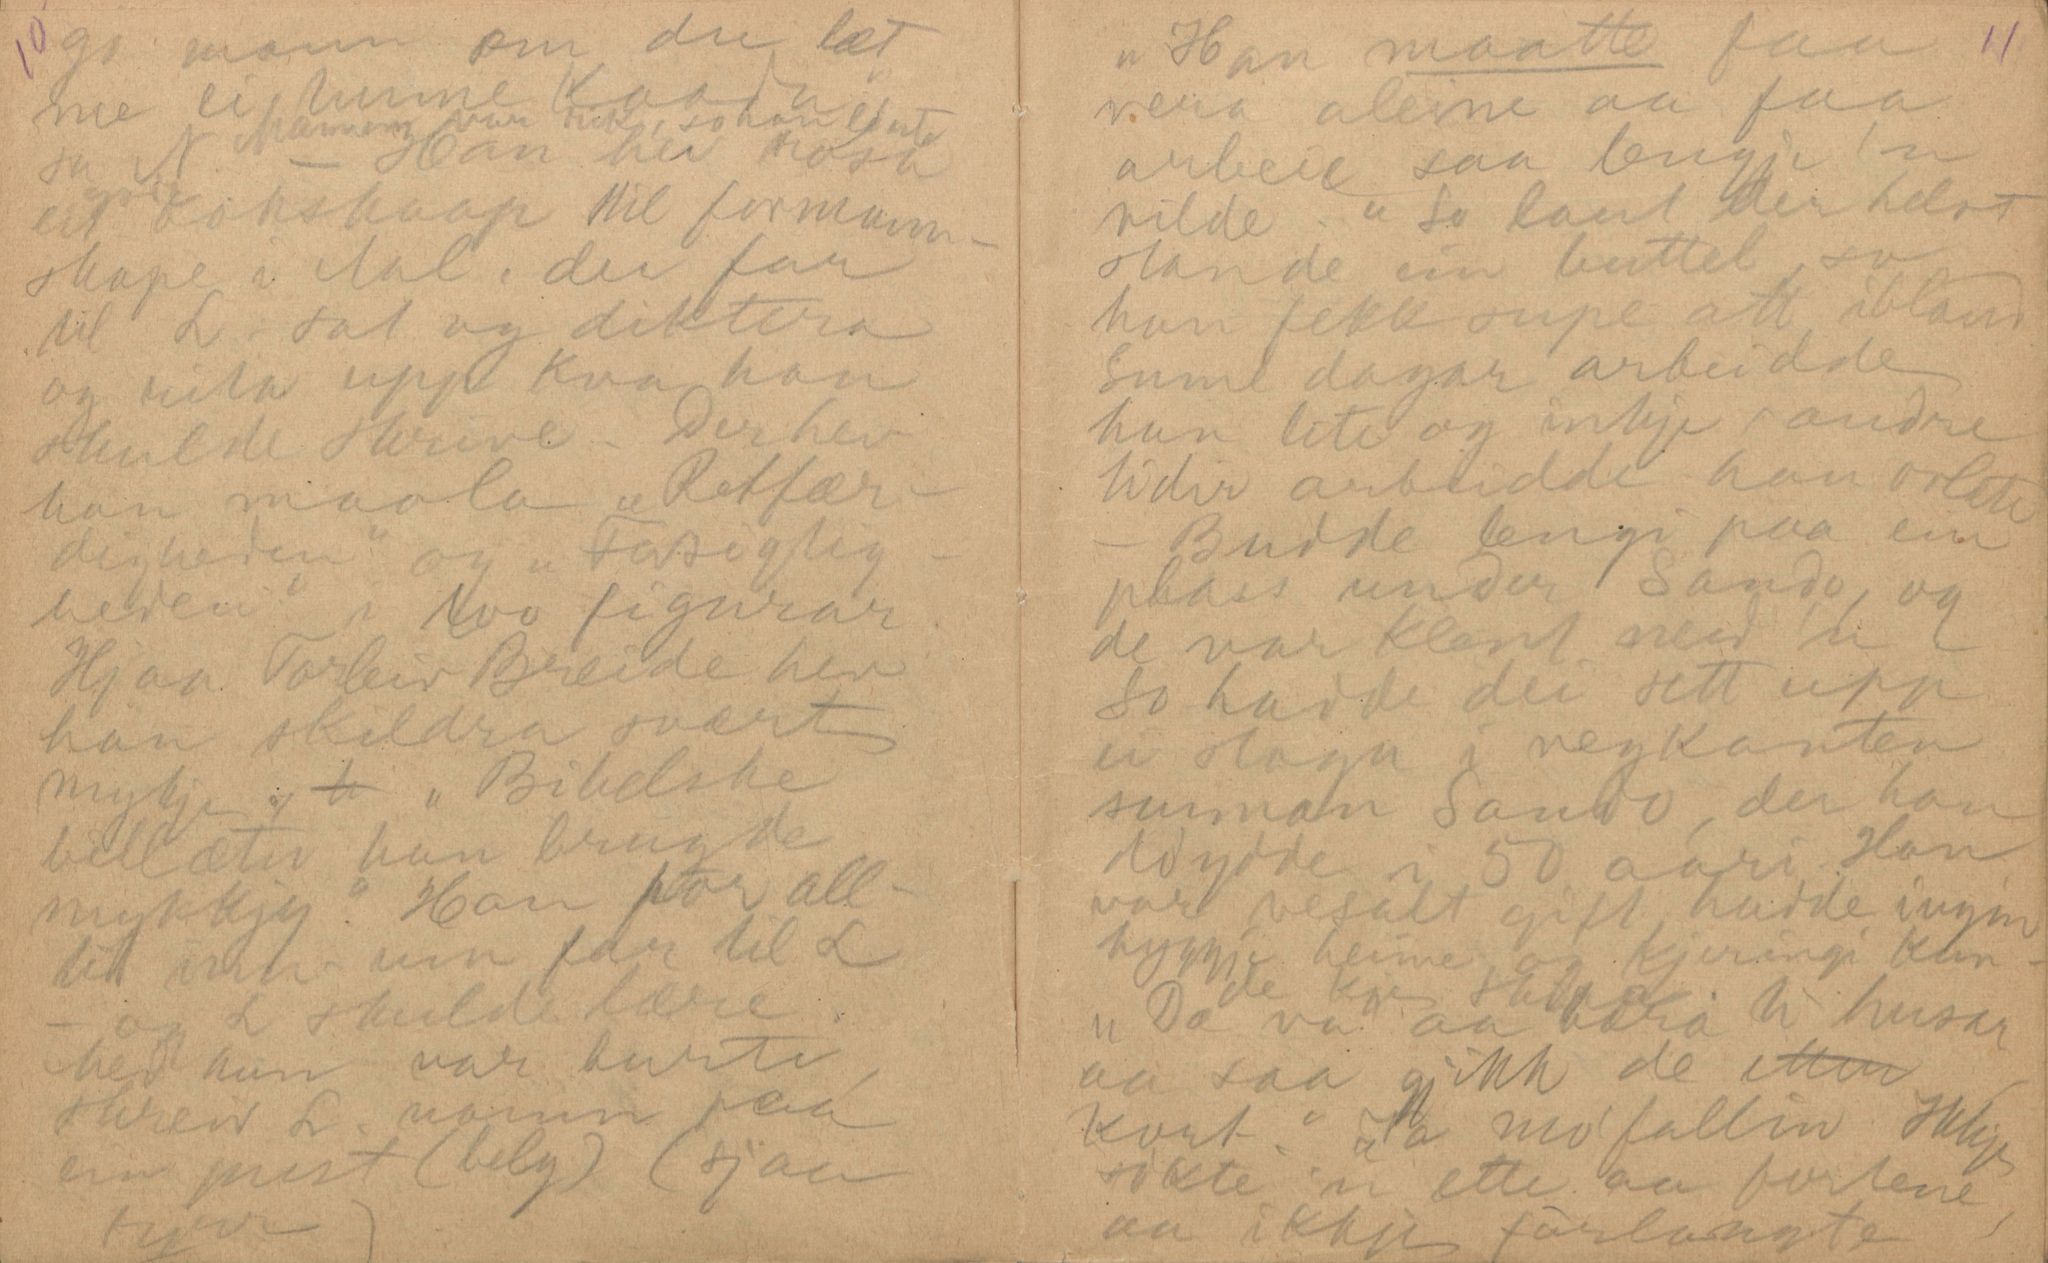 10
go mann om du læt
me ei tunne
Mannen var rik, so han lente
sa N. — Han hev rosa
eit
skaap til formann-
skape i Aal, der far
til L. sat og diktera
og vita upp kva han
skulde skrive. Der hev
han maala „Retfær-
digheden" og „Forsigtig-
heden" i figurar.
Hjaa Torleiv Breide hev
han skildra svært
mykje, „Bibelske
bellæter han brugde
mykkjy." Han for all-
tid um far til L
— og L skulde lære.
Med han var burte,
skreiv L. namn paa
ein prest (belg) (sjaa
fyrr)
11
„Han maatte faa
vera aleine aa faa
arbeie saa lengje 'n
vilde." So laut der helst
stande ein buttel, so
han fekk supe att ibland
Sume dagar arbeidde
han lite og inkje, andre
tider arbeidde han
— Budde lengi paa ein
plass under Sando, og
de var klent med 'n
So hadde dei sett upp
ei stogu i vegkanten
sunnan Sando, der han
døydde i 50 aari. Han
var vesalt gift, hadde ingin
hyggje heime og kjeringi kun-
de kje stelle
„Da va aa vera ti husar
aa saa gjikk de etter
kort." „ mo'fallin Ikkje
søkte 'n ette aa fortene,
aa ikkje forlangte